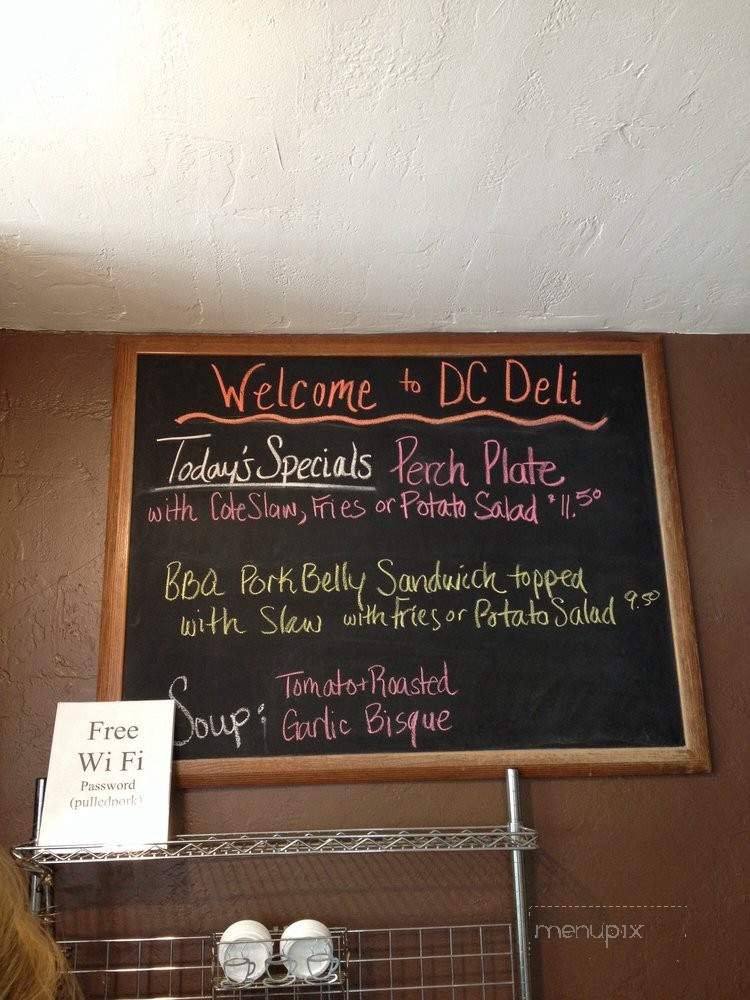 Welcome to DC Deli
Today's Specials Perch Plate
with Cole Slaw, Fries or Potato Salad $11.50
BBQ Pork Belly Sandwich topped
with Slaw with Fries or Potato Salad 9.50
Soup: Tomato + Roasted
Garlic Bisque
Free
Wi Fi
Password
(pulledpork)
menupix